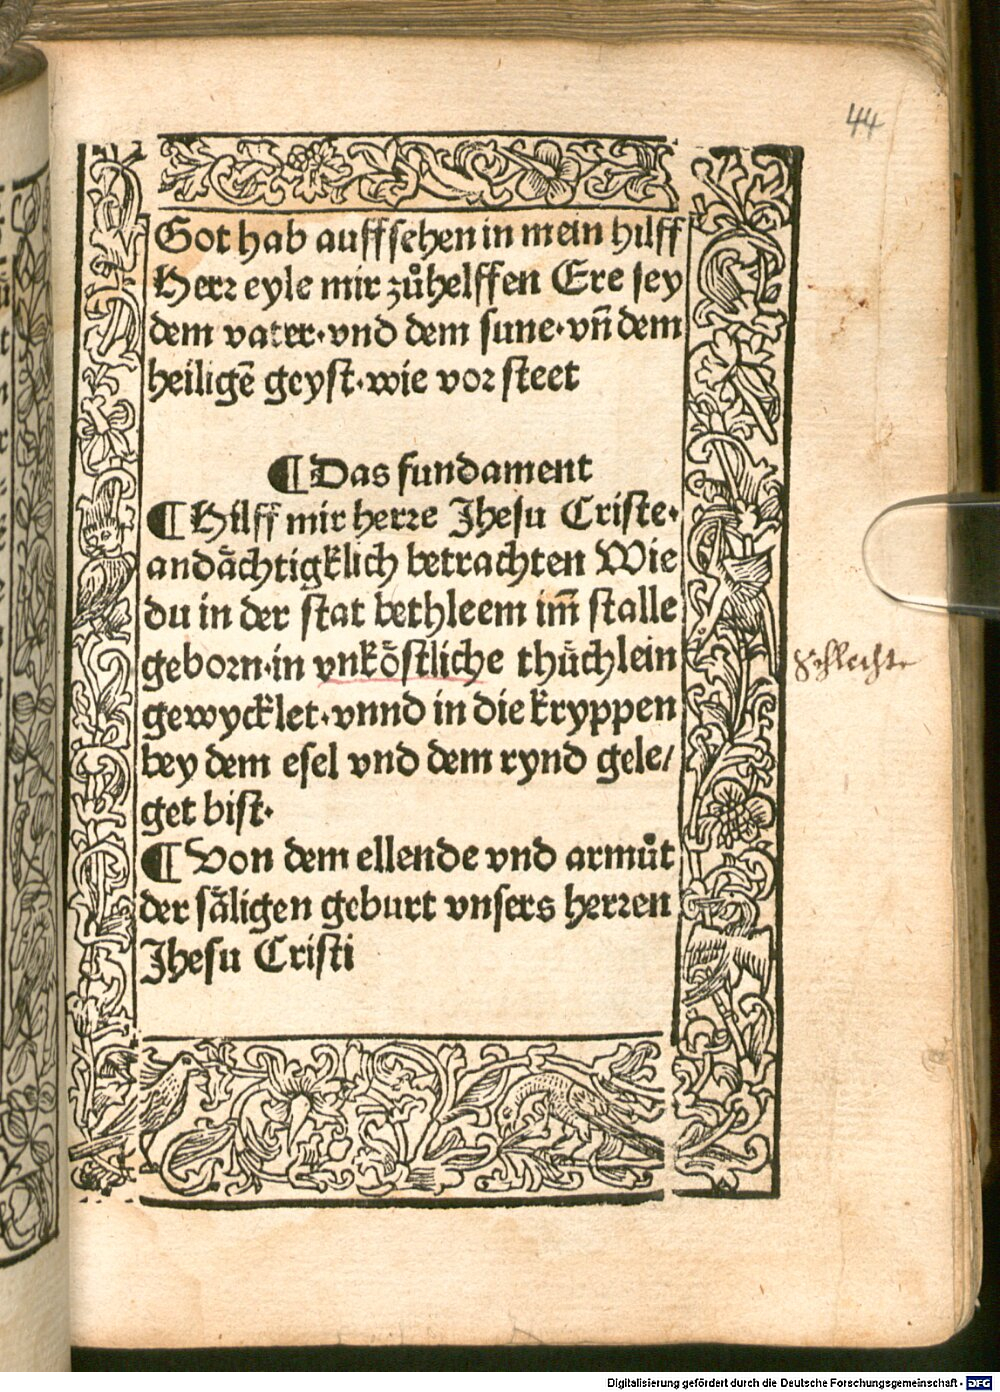 44
Got hab auffsehen in mein hilff
Herr eyle mir zůhelffen Ere sey
dem vater·vnd dem sune·vñ dem
heiligē geyst·wie vor steet
¶ Das fundament
¶ Hilff mir herre Jhesu Criste·
andächtigklich betrachten Wie
du in der stat bethleem im̄ stalle
geborn·in vnköstliche thüchlein
gewycklet·vnnd in die kryppen
bey dem esel vnd dem rynd gele/
get bist·
schlechte
¶ Von dem ellende vnd armůt
der säligen geburt vnsers herren
Jhesu Cristi
Digitalisierung gefördert durch die Deutsche Forschungsgemeinschaft - DFG